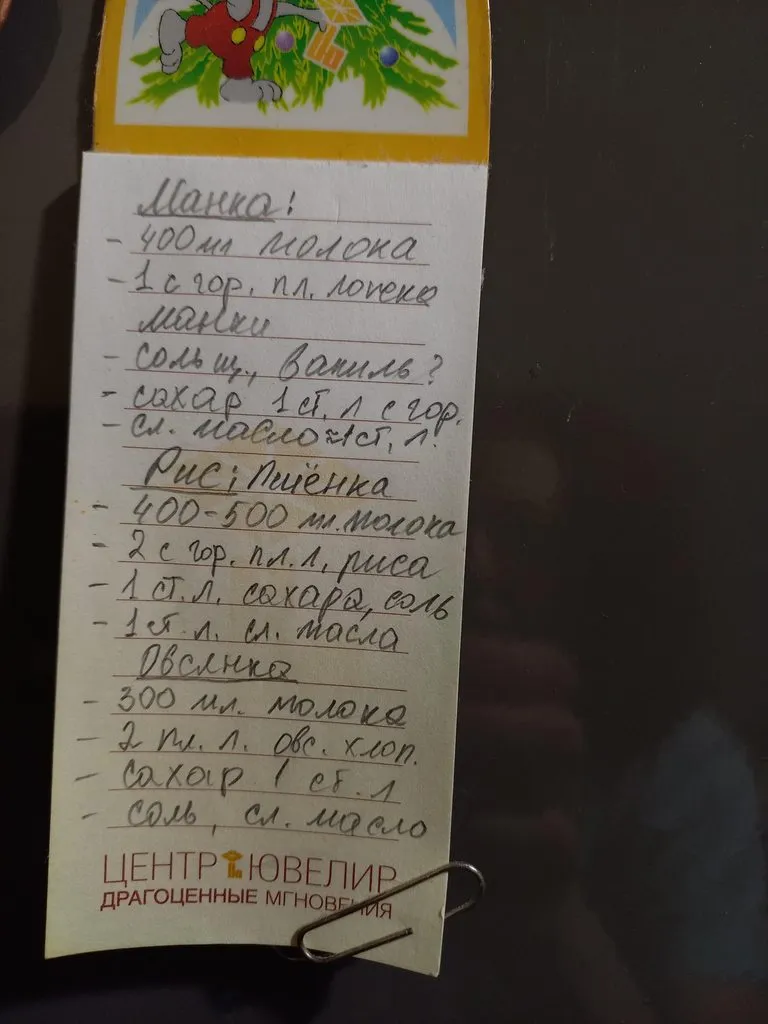 Манка:
- 400 мл молока
- 1 с гор. пл. ложка
манки
- соль щ., ваниль?
- сахар 1 ст. л с гор.
- сл. масло ≈1 ст. л.
Рис; Пшёнка
- 400-500 мл. молока
- 2 с гор. пл. л. риса
- 1 ст. л. сахара, соль
- 1 ст. л. сл. масла
Овсянка
- 300 мл. молока
- 2 пл. л. овс. хлоп.
- сахар 1 ст. л
- соль, сл. масло
ЦЕНТР ЮВЕЛИР
ДРАГОЦЕННЫЕ МГНОВЕНИЯ